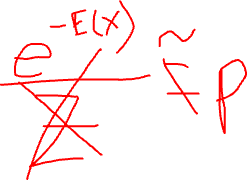 e^-E(X)
Z p